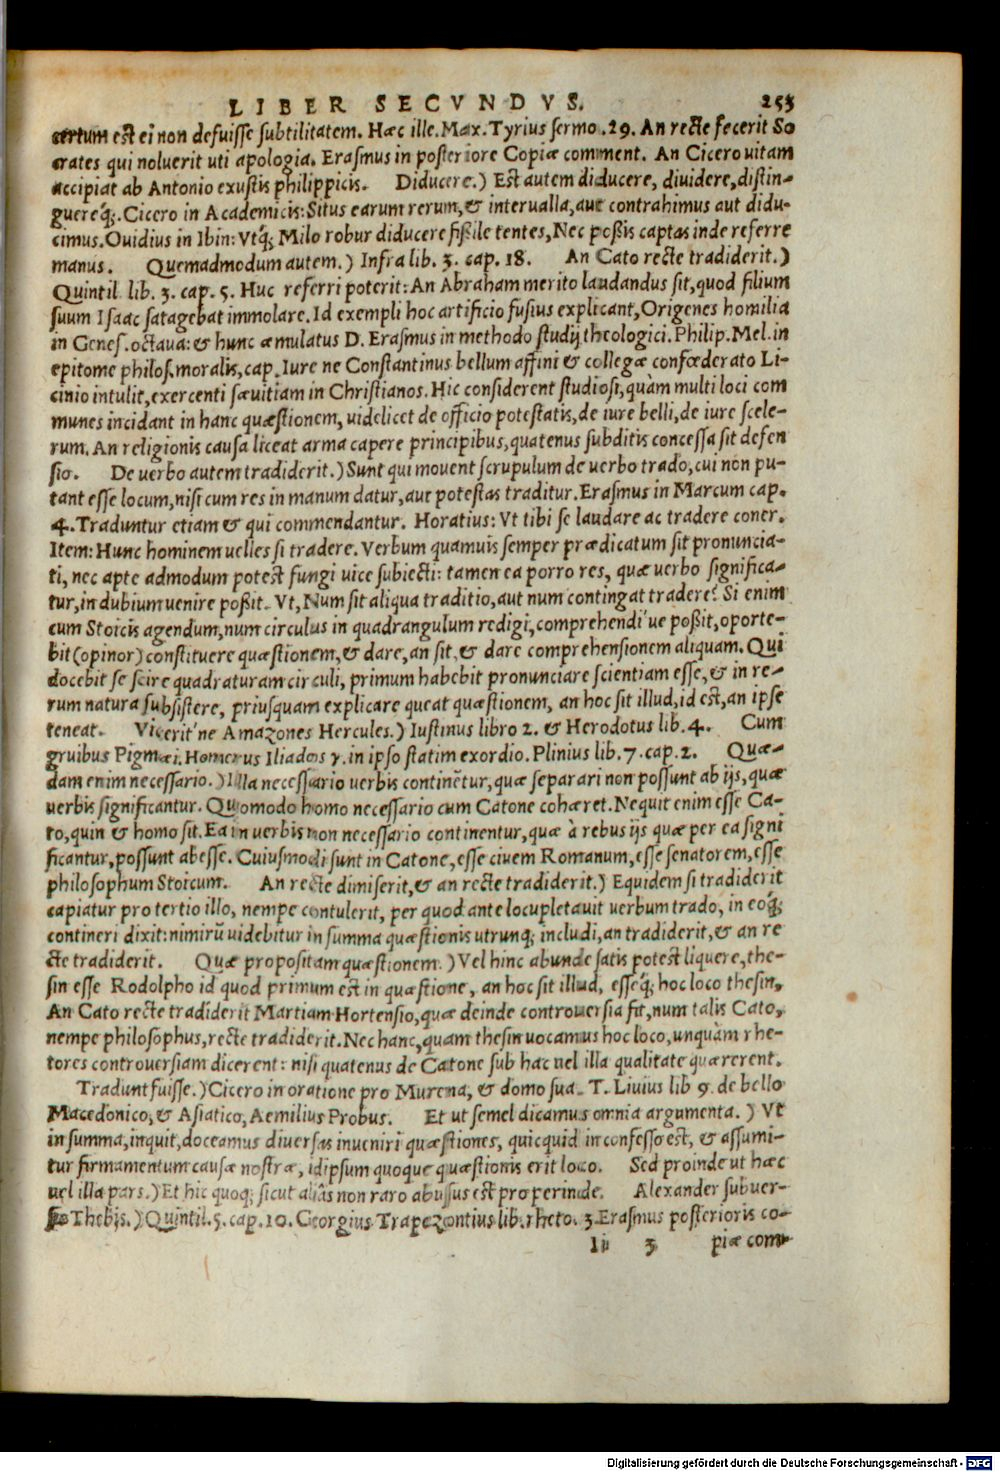 LIBER SECVNDVS. 253
certum est ei non defuisse subtilitatem. Hæc ille. Max. Tyrius sermo .29. An recte fecerit So
crates qui noluerit uti apologia. Erasmus in posteriore Copiæ comment. An Cicero uitam
accipiat ab Antonio exustis philippicis. Diducere.) Est autem diducere, diuidere, distin-
guereq́;. Cicero in Academicis: Situs earum rerum, & interualla, aut contrahimus aut didu-
cimus. Ouidius in Ibin: Vtq́; Milo robur diducere fißile tentes, Nec poßis captas inde referre
manus. Quemadmodum autem.) Infra lib. 3. cap. 18. An Cato recte tradiderit.)
Quintil lib. 3. cap. 5. Huc referri poterit: An Abraham merito laudandus sit, quod filium
suum Isaac satagebat immolare. Id exempli hoc artificio fusius explicant, Origenes homilia
in Genes. octaua: & hunc æmulatus D. Erasmus in methodo studij theologici. Philip. Mel. in
epitome philos. moralis, cap. Iure ne Constantinus bellum affini & collegæ confœderato Li-
cinio intulit, exercenti sæuitiam in Christianos. Hic considerent studiosi, quàm multi loci com
munes incidant in hanc quæstionem, uidelicet de officio potestatis, de iure belli, de iure scele-
rum. An religionis causa liceat arma capere principibus, quatenus subditis concessa sit defen
sio. De uerbo autem tradiderit.) Sunt qui mouent scrupulum de uerbo trado, cui non pu-
tant esse locum, nisi cum res in manum datur, aut potestas traditur. Erasmus in Marcum cap.
4. Traduntur etiam & qui commendantur. Horatius: Vt tibi se laudare ac tradere coner.
Item: Hunc hominem uelles si tradere. Verbum quamuis semper prædicatum sit pronuncia-
ti, nec apte admodum potest fungi uice subiecti: tamen ea porro res, quæ uerbo significa-
tur, in dubium uenire poßit. Vt, Num sit aliqua traditio, aut num contingat tradere? Si enim
cum Stoicis agendum, num circulus in quadrangulum redigi, comprehendi ue poßit, oporte-
bit (opinor) constituere quæstionem, & dare, an sit, & dare comprehensionem aliquam. Qui
docebit se scire quadraturam circuli, primum habebit pronunciare scientiam esse, & in re-
rum natura subsistere, priusquam explicare queat quæstionem, an hoc sit illud, id est, an ipse
teneat. Vicerit'ne Amazones Hercules.) Iustinus libro 2. & Herodotus lib. 4. Cum
gruibus Pigmæi. Homerus Iliados γ. in ipso statim exordio. Plinius lib. 7. cap. 2. Quæ-
dam enim necessario.) Illa necessario uerbis continētur, quæ separari non possunt ab ijs, quæ
uerbis significantur. Quomodo homo necessario cum Catone cohæret. Nequit enim esse Ca-
to, quin & homo sit. Ea in uerbis non necessario continentur, quæ à rebus ijs quæ per ea signi
ficantur, possunt abesse. Cuiusmodi sunt in Catone, esse ciuem Romanum, esse senatorem, esse
philosophum Stoicum. An recte dimiserit, & an recte tradiderit.) Equidem si tradiderit
capiatur pro tertio illo, nempe contulerit, per quod ante locupletauit uerbum trado, in eoq́;
contineri dixit: nimirū uidebitur in summa quæstionis utrunq; includi, an tradiderit, & an re
cte tradiderit. Quæ propositam quæstionem.) Vel hinc abunde satis potest liquere, the-
sin esse Rodolpho id quod primum est in quæstione, an hoc sit illud, esseq́; hoc loco thesin,
An Cato recte tradiderit Martiam Hortensio, quæ deinde controuersia fit, num talis Cato,
nempe philosophus, recte tradiderit. Nec hanc, quam thesin uocamus hoc loco, unquàm rhe-
tores controuersiam dicerent: nisi quatenus de Catone sub hac uel illa qualitate quærerent.
Tradunt fuisse.) Cicero in oratione pro Murena, & domo sua. T. Liuius lib 9. de bello
Macedonico, & Asiatico, Aemilius Probus. Et ut semel dicamus omnia argumenta.) Vt
in summa, inquit, doceamus diuersas inueniri quæstiones, quicquid in confesso est, & assumi-
tur firmamentum causæ nostræ, id ipsum quoque quæstionis erit loco. Sed proinde ut hæc
uel illa pars.) Et hic quoq; sicut aliâs non raro abusus est pro perinde. Alexander subuer-
so Thebis.) Quintil. 5. cap. 10. Georgius Trapezontius lib. rheto. 3. Erasmus posterioris co-
li 3 piæ com-
Digitalisierung gefördert durch die Deutsche Forschungsgemeinschaft - DFG